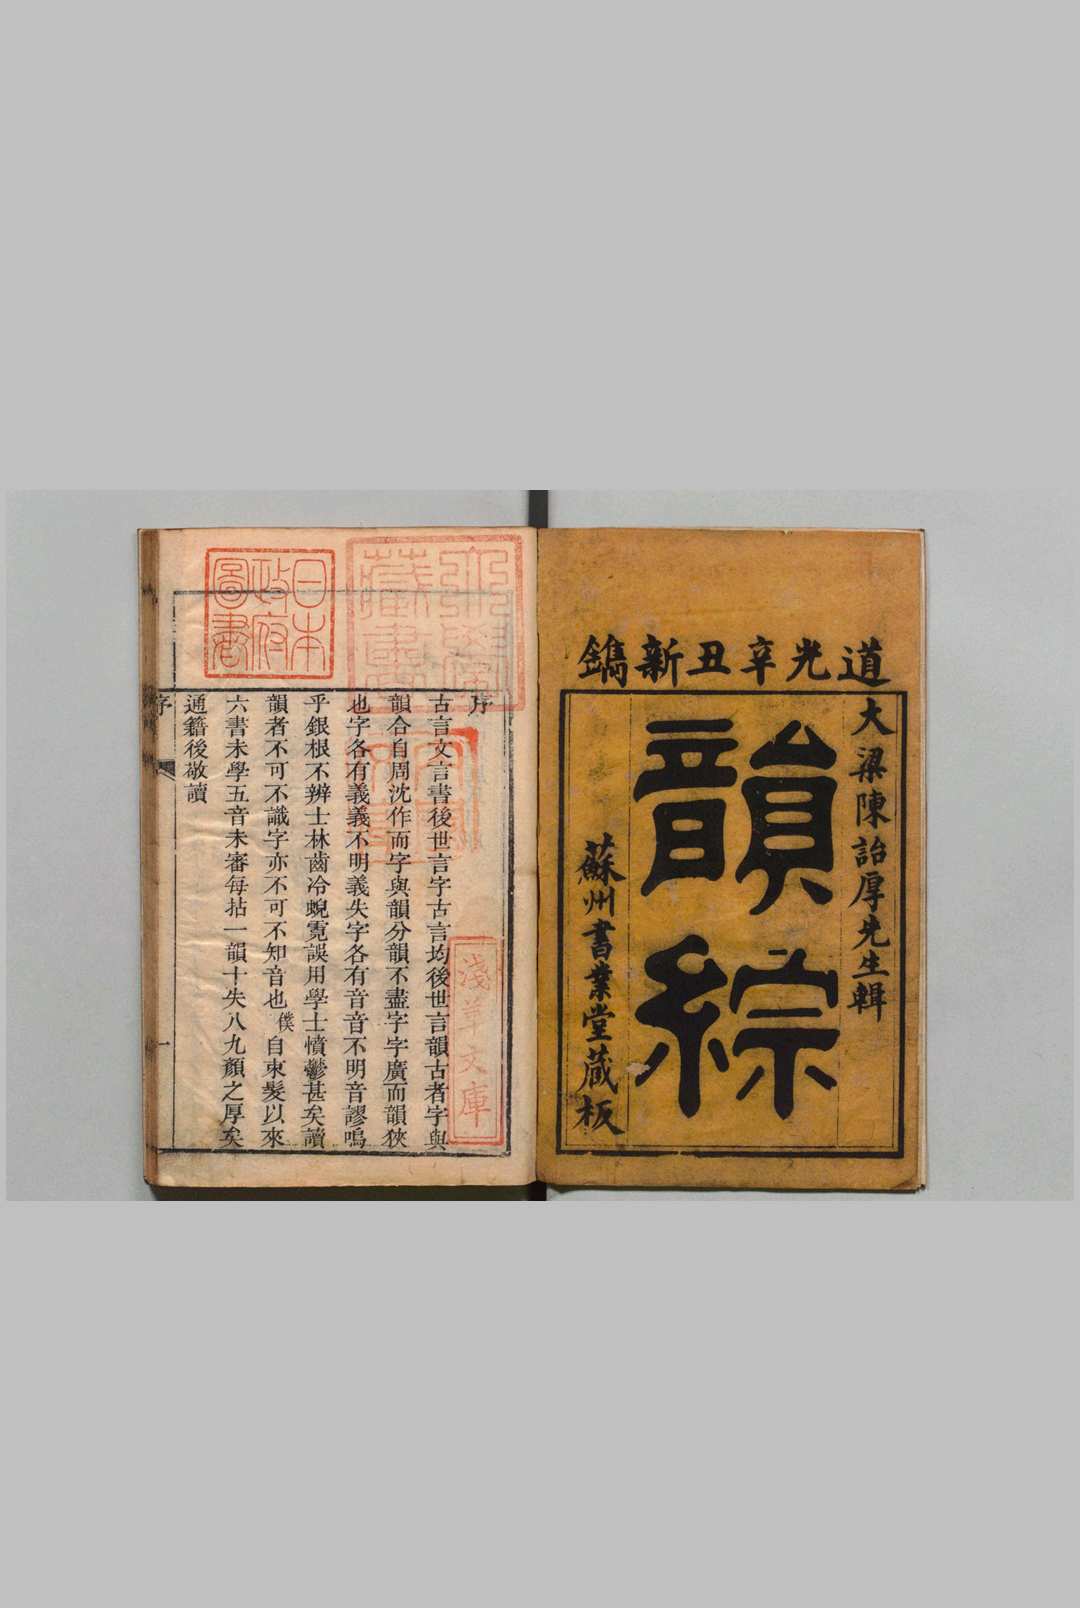 道光辛丑新鐫
大梁陳詒厚先生輯
韻綜
蘇州書業堂蔵板
序
古言文言書後世言字古言均後世言韻古者字與
韻合自周沈作而字與韻分韻不盡字字廣而韻狹
也字各有義義不明義失字各有音音不明音謬嗚
乎銀根不辨士林齒冷蜺霓誤用學士憤鬱甚矣讀
韻者不可不識字亦不可不知音也僕自束髮以來
六書未學五音未審每拈一韻十失八九顏之厚矣
通籍後敬讀
序
一
日本
政府
圖書
淺草文庫